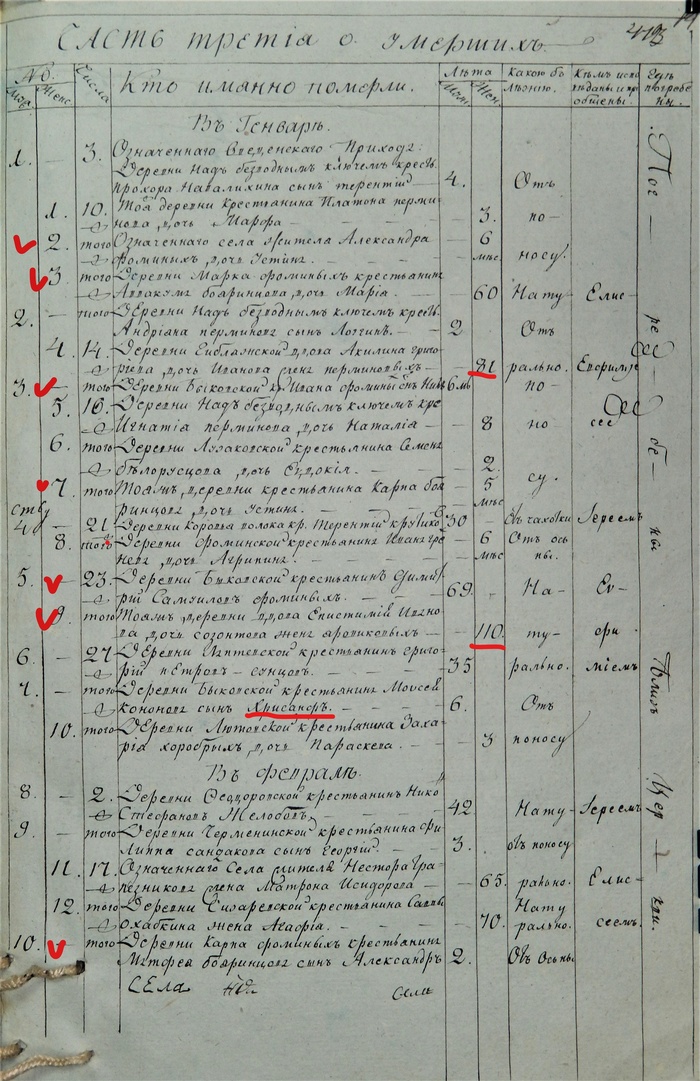 413
Часть третія о умершихъ.
No.
Муж. Женс. Числа Кто имянно померли. Лѣта Муж. Жен. Какою болѣзнію. Кѣмъ исповѣданы и пріобщены. Гдѣ погребены.
Въ Генварѣ.
1. — 3. Означеннаго Введенскаго Прихода:
Деревни Надъ безводнымъ ключемъ крестъ.
Прохора сынъ терентій 4. Отъ
1. 10. Тоя деревни крестьянина Платона перми-
нова дочь Марфа — 3. по —
2. того Означеннаго села жителя Александра 6
Фоминыхъ дочь Устина. мѣс. носу.
3 того Деревни Марка фоминыхъ крестьянина
Аввакума бояринцова дочь Марія. — 60 Нату — Елис —
2. — того Деревни Надъ безводнымъ ключемъ крест.
Андріана перминова сынъ Логгинъ. 2 Отъ
4. 14. Деревни вдова Акилина григо-
рьева дочь Иванова жена перминовыхъ — 81 рально.
3. — того Деревни Быковской кр. Ивана фоминыхъ сынъ 6 мѣ по —
5. 16. Деревни Надъ безводнымъ ключемъ кре
Игнатія перминова дочь Наталіа — 8 по
6. того Деревни крестьянина Семена
бѣлорусцова дочь Евдокіа. — 2. су.
7. того Тояжъ деревни крестьянина Карпа боя- 5
ринцова дочь Устина. мѣс
4 — 21. Деревни Коровья полока кр. Терентій 30 Отъ чахотки Іереемъ
8. того Деревни фоминской крестьянина Ивана гре 6 Отъ ос
нева дочь Агрипина. мѣс пы.
5. 23. Деревни Быковской крестьянинъ Димит-
рій Самуиловъ фоминыхъ. 69. На — Ев —
9. того Тояжъ деревни вдова Епистиміа Ивано-
ва дочь созонтова жена — 110. ту — фи
6. — 27 Деревни крестьянинъ григо-
рій петровъ сунцовъ. 35 рально. міемъ
7. — того Деревни Быковской крестьянина Моисея
кононова сынъ Хрисанфъ. 6. Отъ
10. того Деревни Лютовской крестьянина Заха-
ріа хоробрыхъ дочь Параскева. — 3 поносу
Въ Февралѣ.
8 — 2. Деревни Ѳеодоровской крестьянинъ Нико
Стефановъ Желобовъ 42 Нату — Іереемъ
9. — того Деревни Черменинской крестьянина Фи-
липпа сандакова сынъ Георгій. 3. отъ поносу
11. 17. Означеннаго Села жителя Нестора гра-
жена Матрона Исидорова — 65. рально. Елис —
12. того Деревни крестьянина Саввы Нату
охабкина жена Агафіа. — 70. рально. сеемъ.
10. — того Деревни Карпа фоминыхъ крестьянина
Матфеа бояринцова сынъ Александръ 2. Отъ Оспы.
СЕла
Села